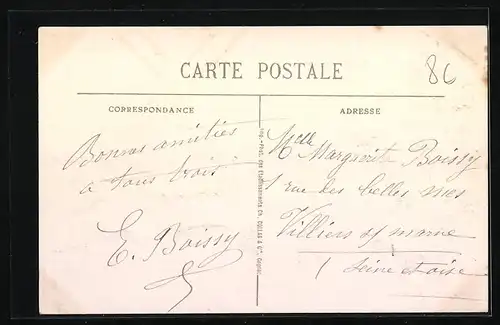 CARTE POSTALE
86
CORRESPONDANCE
ADRESSE
Bonnes amitiés
à tous trois
E. Boissy
Imp.-Phot. des Etablissements Ch. COLLAS & Cie, Cognac
Melle Marguerite Boissy
1 rue des belles mes
Villiers s/ marne
Seine et oise